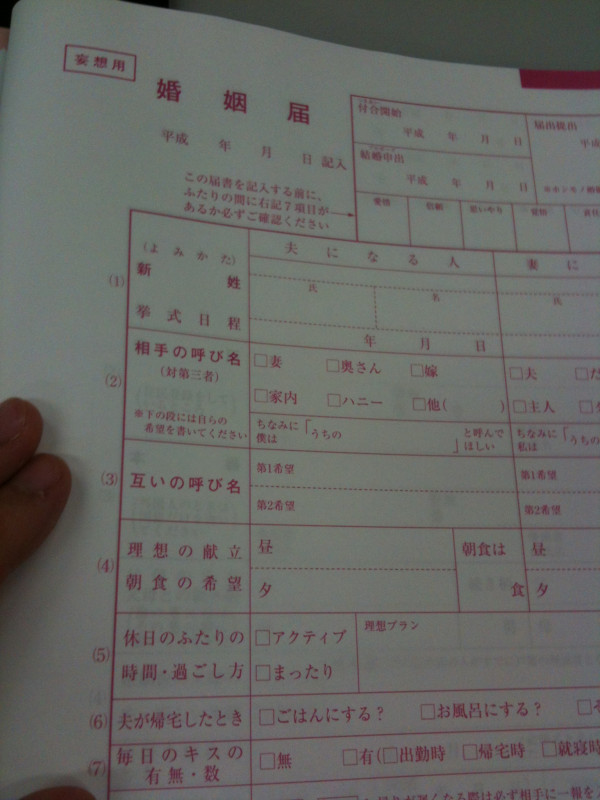 妄想用
婚姻届
平成 年 月 日 記入
この届書を記入する前に、
ふたりの間に右記7項目が
あるか必ずご確認ください
付合開始
平成 年 月 日
結婚申出
平成 年 月 日
届出提出
愛情 信頼 思いやり
夫になる人
妻に
(1)
(よみかた)
新姓
氏 名
氏
挙式日程
年 月 日
(2)
相手の呼び名
(対第三者)
※下の段には自らの
希望を書いてください
□妻 □奥さん □嫁
□家内 □ハニー □他( )
□夫
□主人
ちなみに「うちの
僕は
」と呼んで
ほしい
ちなみに「うちの
私は
(3)
互いの呼び名
第1希望
第2希望
第1希望
第2希望
(4)
理想の献立
朝食の希望
昼
夕
朝食は
食
昼
夕
(5)
休日のふたりの
時間・過ごし方
□アクティブ
□まったり
理想プラン
(6)
夫が帰宅したとき
□ごはんにする? □お風呂にする? □そ
(7)
毎日のキスの
有無・数
□無 □有(□出勤時 □帰宅時 □就寝時